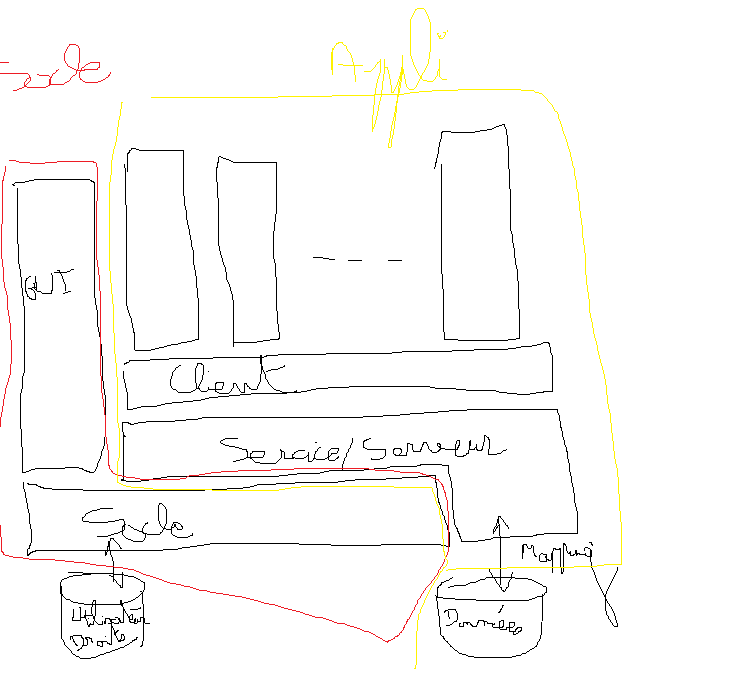 Socle
Appli
GUI
Client
Service/Serveur
Socle
Mapping
Utilisateur
Droits
Données